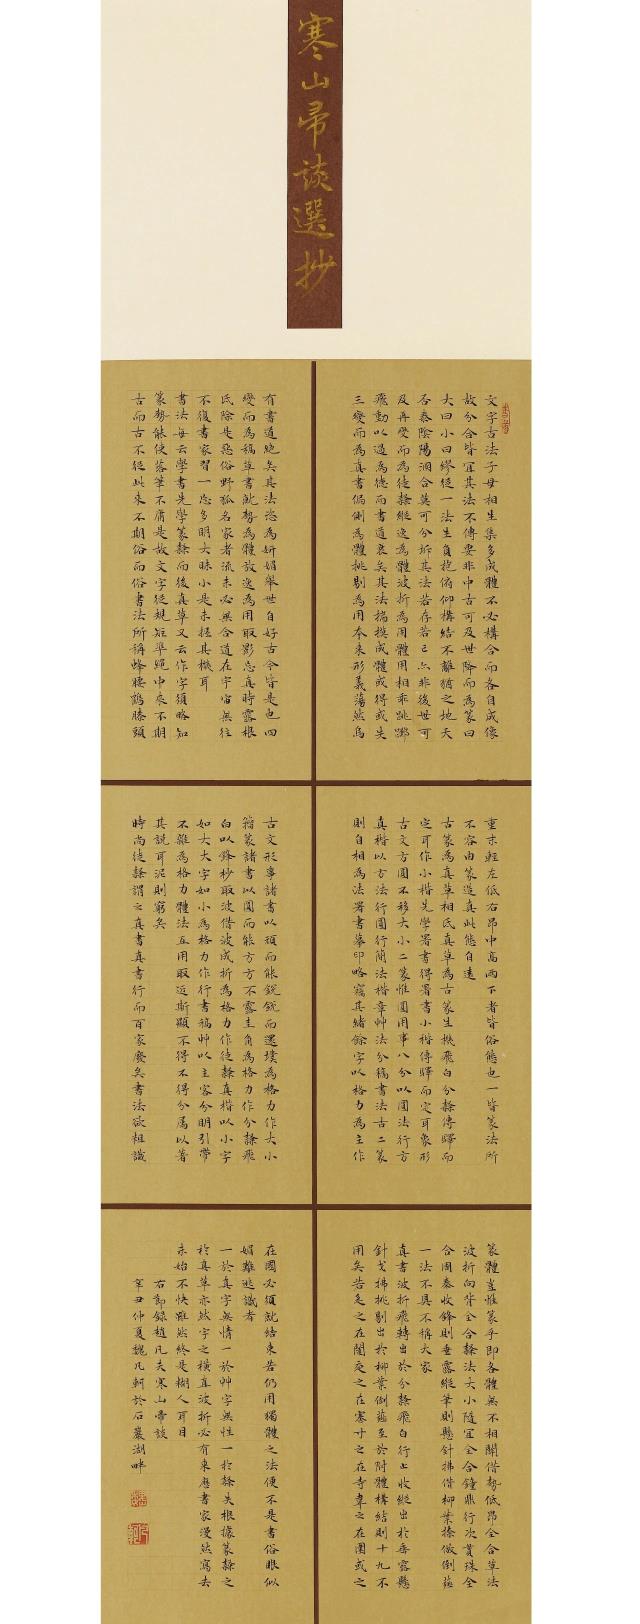 寒山帚談選抄
文字古法子母相生集多成體不必構合而各自成像
故分合皆宜其法不傳要非中古可及世降而為篆曰
大曰小曰繆從一法生負抱俯仰構結不離猶之地天
否泰陰陽涸合莫可分拆其法若存若亡亦非後世可
及再變而為徒隸縱逸為體波折為用體用相乖跳擲
飛動以過為德而書道衰矣其法揣摸成體或得或失
三變而為真書偏側為體挑剔為用本來形義蕩然烏
有書道絕矣其法恣為妍媚舉世自好古今皆是也四
變而為稿草書就勢為體放逸為用取影忘真時露根
氏除是惡俗野狐名家者流未必無合道在宇宙無往
不復書家習一忘多明大昧小是未握其機耳
書法每云學書先學篆隸而後真草又云作字須略知
篆勢能使落筆不庸是故文字從規矩準繩中來不期
古而古不從此來不期俗而俗書法所稱蜂腰鶴膝頭
重末輕左低右昂中高兩下者皆俗態也一皆篆法所
不容由篆造真此態自遠
古篆為真草相氏真草為古篆生機飛白分隸傳驛而
定耳作小楷先學署書得署書小楷傳驛而定耳象形
古文方圓不移大小二篆惟圓用事八分以圓法行方
真楷以方法行圓行簡法楷章艸法分稿書法古二篆
則自相為法署書摹印略寤其緒餘字以格力為主作
古文形事諸書以頑而能銳銳而還墣為格力作大小
籀篆諸書以圓而能方方不露圭角為格力作分隸飛
白以鋒杪取波借波成折為格力作徒隸真楷以小字
如大大字如小為格力作行書稿艸以主客分明引帶
不雜為格力體法互用取近斯顯不得不得分屬以著
其說耳泥則窮矣
時尚徒隸謂之真書真書行而百家廢矣書法欲祖識
篆體豈惟篆乎即各體無不相關借勢低昂全合草法
波折向背全合隸法大小隨宜全合鐘鼎行次貫珠全
合周秦收鋒則垂露縱筆則懸針拂借柳葉捺倣倒薤
一法不具不稱大家
真書波折飛轉出於分隸飛白行止收縱出於垂露懸
針戈拂挑剔出於柳葉倒薤至於附體構結則十九不
用矣若辵之在閣廴之在寋寸之在寺韋之在圍或之
在國必須就結束若仍用獨體之法便不是書俗眼似
媚難逃識者
一於真字無情一於艸字無性一於隸失根據篆隸之
於真草亦然字之橫直波折必有來歷書家漫然寫去
未始不快雖然終是糊人耳目
右節錄趙凡夫寒山帚談
辛丑仲夏魏凡軻於石巖湖畔